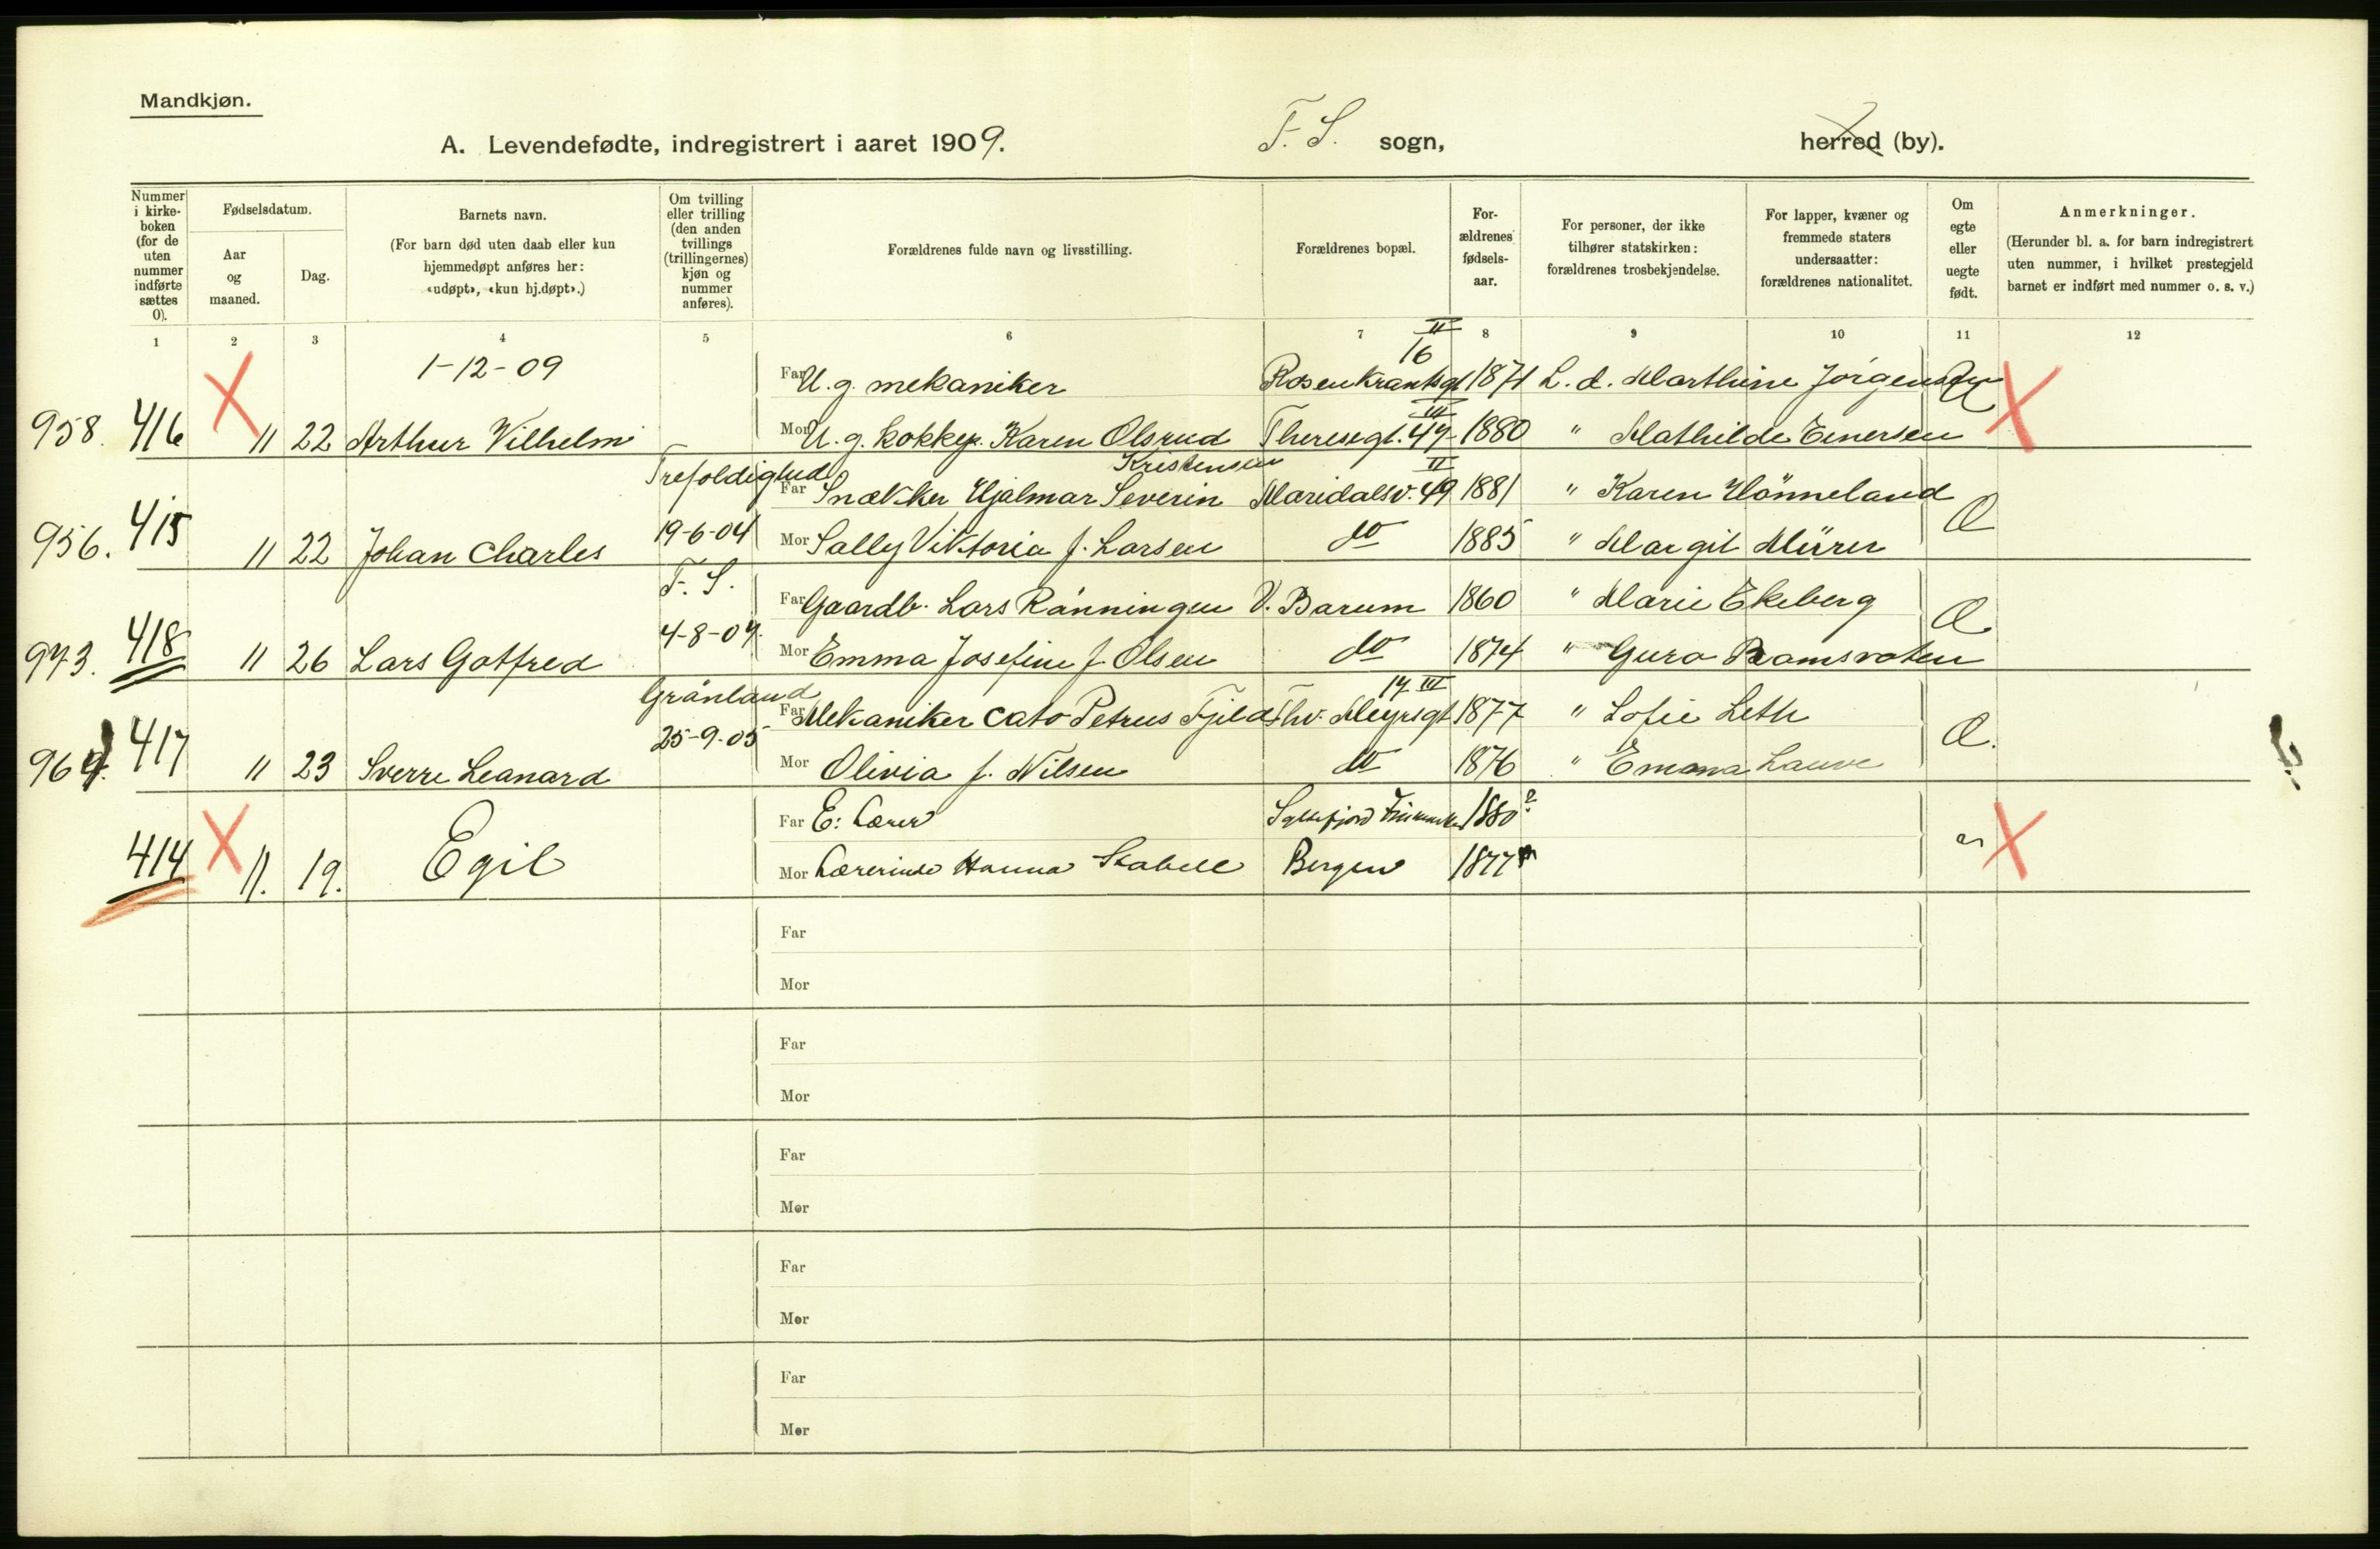 Mandkjøn.
A. Levendefødte, indregistrert i aaret 1909. F. S. sogn, herred (by).
Nummer i kirkeboken (for de uten nummer indførte sættes 0).
Fødselsdatum.
Aar og maaned.
Dag.
Barnets navn.
(For barn død uten daab eller kun hjemmedøpt anføres her: «udøpt», «kun hj.døpt».)
Om tvilling eller trilling (den anden tvillings (trillingernes) kjøn og nummer anføres).
Forældrenes fulde navn og livsstilling.
Forældrenes bopæl.
Forældrenes fødselsaar.
For personer, der ikke tilhører statskirken: forældrenes trosbekjendelse.
For lapper, kvæner og fremmede staters undersaatter: forældrenes nationalitet.
Om egte eller uegte født.
Anmerkninger.
(Herunder bl. a. for barn indregistrert uten nummer, i hvilket prestegjeld barnet er indført med nummer o. s. v.)
1 2 3 4 5 6 7 8 9 10 11 12
1-12-09 Far U. g. mekaniker Rosenkrantsgt 16 II 1871 L. d. Marthine Jörgensen
958. 416 11 22 Arthur Vilhelm Mor U. g. kokkep. Karen Olsrud Theresegt. 47 III 1880 " Mathilde Emersen
Trefoldighed Far Snækker Hjalmar Severin Kristensen Maridalsv. 49 II 1881 " Karen Hönneland
956. 415 11 22 Johan Charles 19-6-04 Mor Sally Viktoria f. Larsen do 1885 " Margit Mürer
F. S. Far Gaardb. Lars Rönningen V. Barum 1860 " Marie Ekeberg
973. 418 11 26 Lars Gotfred 4-8-07. Mor Emma Josefine f. Olsen do 1874 " Guro Ramsvoten
Grönland Far Mekaniker Cato Petrus Fjeld Thv. Meyrsgt 17 III 1877 " Sofie Leth
964. 417 11 23 Sverre Leanard 25-9-05 Mor Olivia f. Nilsen do 1876 " Emma Lauve
Far E: Lærer 1880 ?
414 11. 19. Egil Mor Lærerinde Hanna Stabell Bergen 1877
Far
Mor
Far
Mor
Far
Mor
Far
Mor
Far
Mor